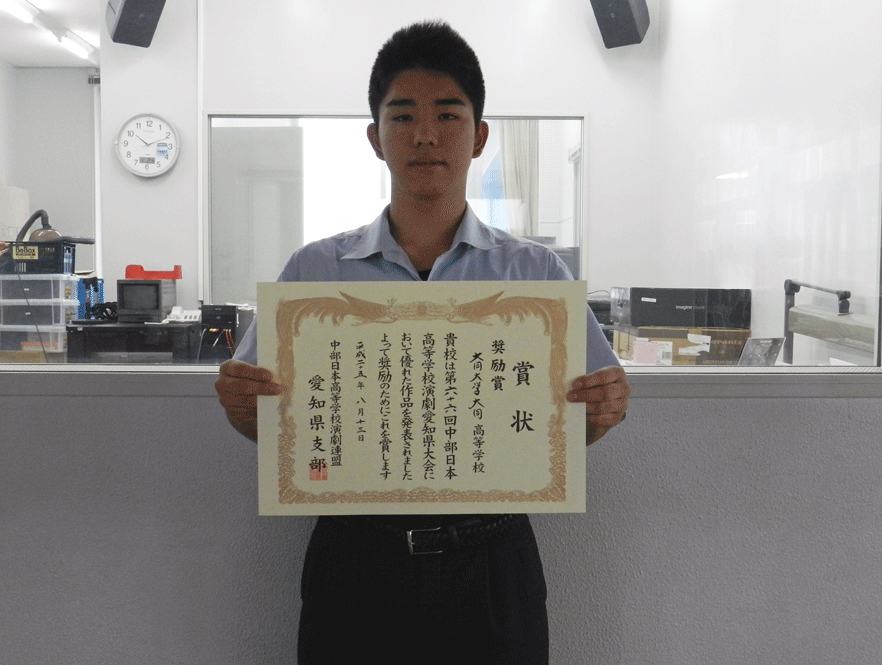 賞状
奨励賞
大同大学大同高等学校
貴校は第六十六回中部日本
高等学校演劇愛知県大会に
おいて優れた作品を発表されました
よって奨励のためにこれを賞します
平成二十五年八月十三日
中部日本高等学校演劇連盟
愛知県支部